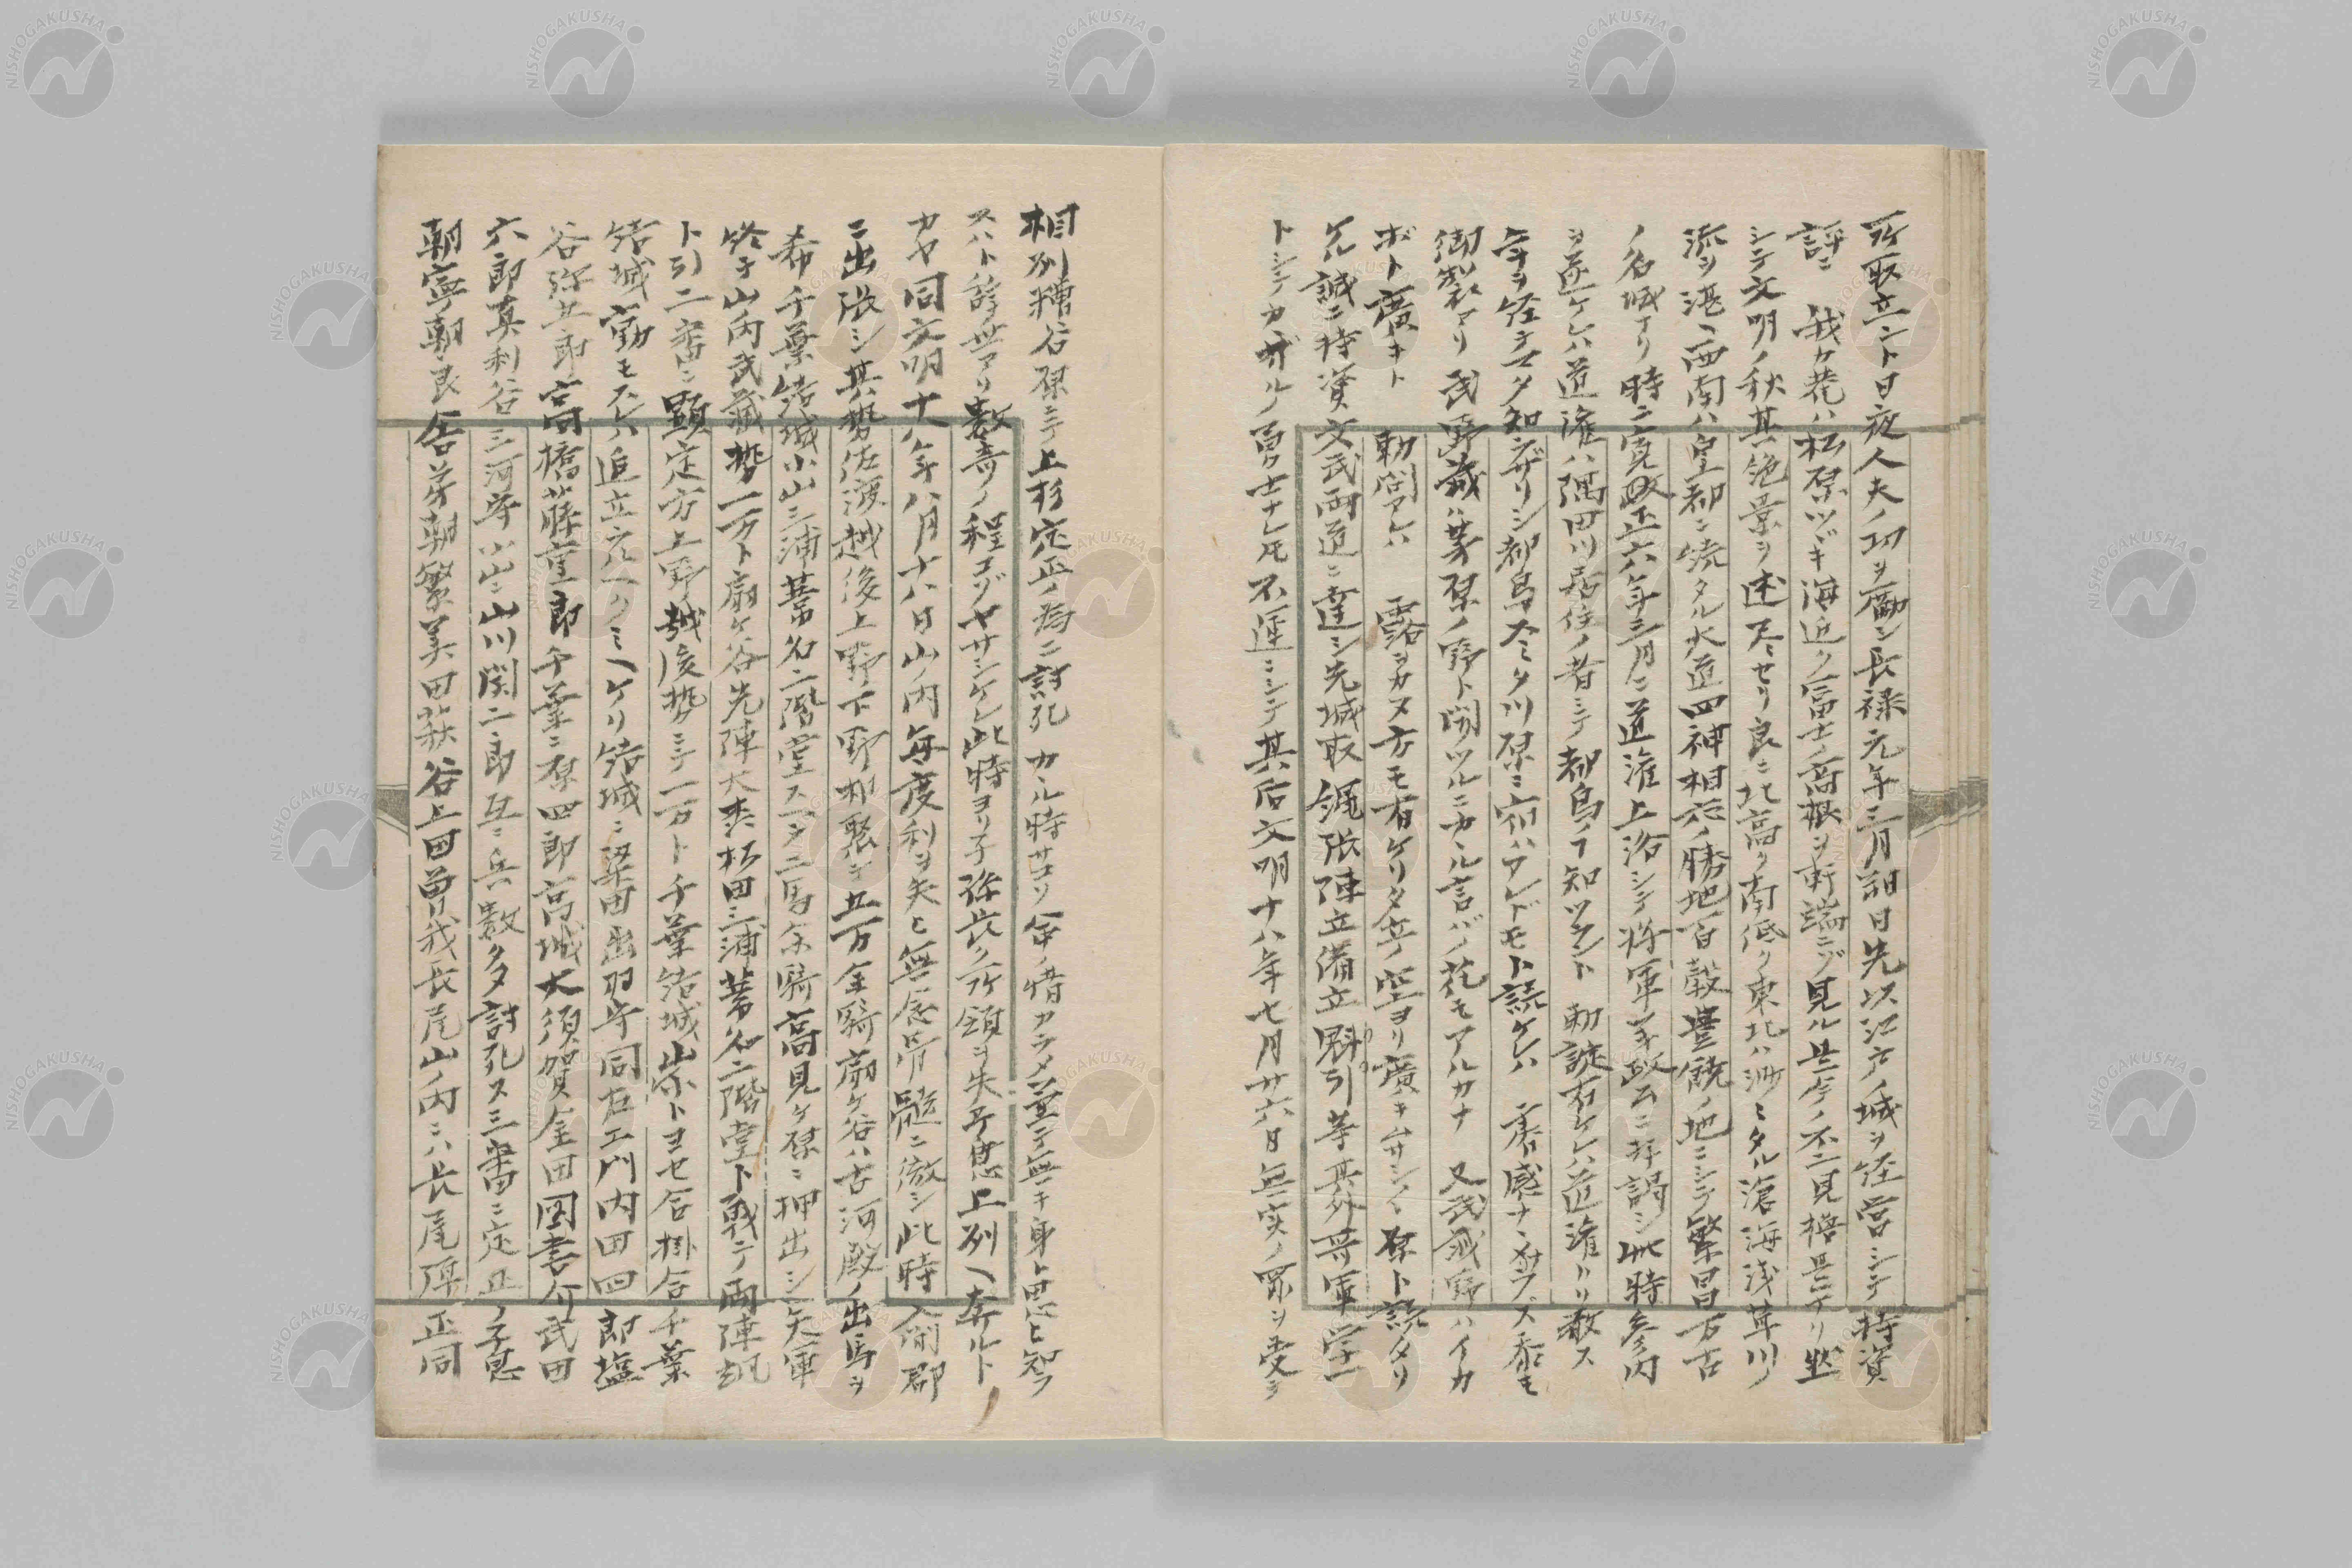 所取立ント日夜人夫ノ功ヲ勵シ長禄元年三月朔日先以江戸ノ城ヲ経営シテ持資
評ニ 我カ菴ハ松原ツヾキ海近ク富士ノ高根ヲ軒端ニゾ見ル是亭ノ不二見櫓是ナリ
シテ文明ノ秋其絶景ヲ述 セリ良ニ北高ク南低ク東北ハ渺々タル滄海浅草川ノ
流ヲ湛ヘ西南ハ皇都ニ続タル水道四神相応ノ勝地百穀豊饒ノ地ニシテ繁昌万古
ノ名城ナリ時ニ寛政 六年三月ニ道灌上洛シテ将軍義政公ニ拝謁シ此時参内
ヲ遂ケレハ道灌ハ隅田川居住ノ者ニテ都鳥ノヿ知ツラント 勅諚有ケレハ道灌トリ敢ス
年ヲ経テマタ知ラザリシ都鳥スミタ川原ニ宿ハアレドモト読ケレハ 叡感ナヽメナラズ忝モ
御製アリ 武蔵野ハ萱原ノ野ト聞ツルニカヽル言バノ花モアルカナ 又武蔵野ハイカ
ボト廣キト 勅問アレハ 露ヲカヌ方モ有ケリ夕立ノ空ヨリ廣キムサシノヽ原ト読タリ
ケル誠ニ持資文武両道ニ達シ先城取縄張陣立備立魁引等其外 軍学一
トシテカザルノ勇士ナレ𪜈不運ニシテ其后文明十八年七月廿六日無実ノ罪ヲ受テ
相刕糟谷原ニテ上杉定正ノ為ニ討死 カヽル時サコソ命ノ惜カラメ兼テ無キ身ト思ヒ知ラ
スハト辞世アリ数奇ノ程コソヤサシケレ此時ヨリ子孫 所領ヲ失テ 上刕ヘ奔ルト
カヤ同文明十八年八月十八日山ノ内毎度利ヲ失ヒ無念骨髄ニ徹シ此時入間郡
ニ出張シ其勢佐渡越後上野下野相聚テ五万余騎扇ケ谷ハ古河殿ノ出馬ヲ
希千葉結城小山三浦葦名二階堂スヘテ三万余騎高見ケ原ニ押出シ矢軍
終テ山内武蔵勢一万ト扇ケ谷先陣大森松田三浦葦名二階堂ト戦テ両陣颯
ト引二番ニ顕定方上野越後勢ニテ一万ト千葉結城 トヨセ合掛合千葉
結城 モスレハ追立ラレヘクミヘケリ結城ニ簗田出羽守同右エ門内田四郎塩
谷弥五郎高橋藤重郎千葉ニ原四郎高城大須賀金田図書介武田
六郎真利谷三河守小山ニ山川関二郎互ニ兵数多討死ス三番ニ定正ノ子息
朝寧朝良舎弟朝繁美田萩谷上田曽我長尾山ノ内ニハ長尾 正同